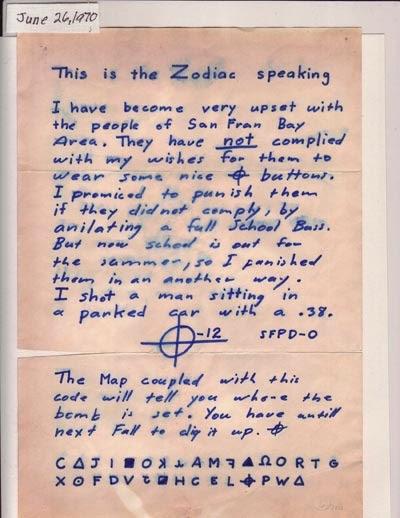 June 26, 1970
This is the Zodiac speaking
I have become very upset with
the people of San Fran Bay
Area. They have not complied
with my wishes for them to
wear some nice ⌖ buttons.
I promiced to punish them
if they did not comply, by
anilating a full School Buss.
But now school is out for
the summer, so I punished
them in an another way.
I shot a man sitting in
a parked car with a .38.
⌖-12 SFPD-0
The Map coupled with this
code will tell you whoe the
bomb is set. You have antill
next Fall to dig it up. ⌖
C Δ J I ■ O ʞ ⅄ A M ꟻ ▲ Ω O R T G
X ⊙ F D V Ƹ ◪ H C E L ⌖ P W Δ